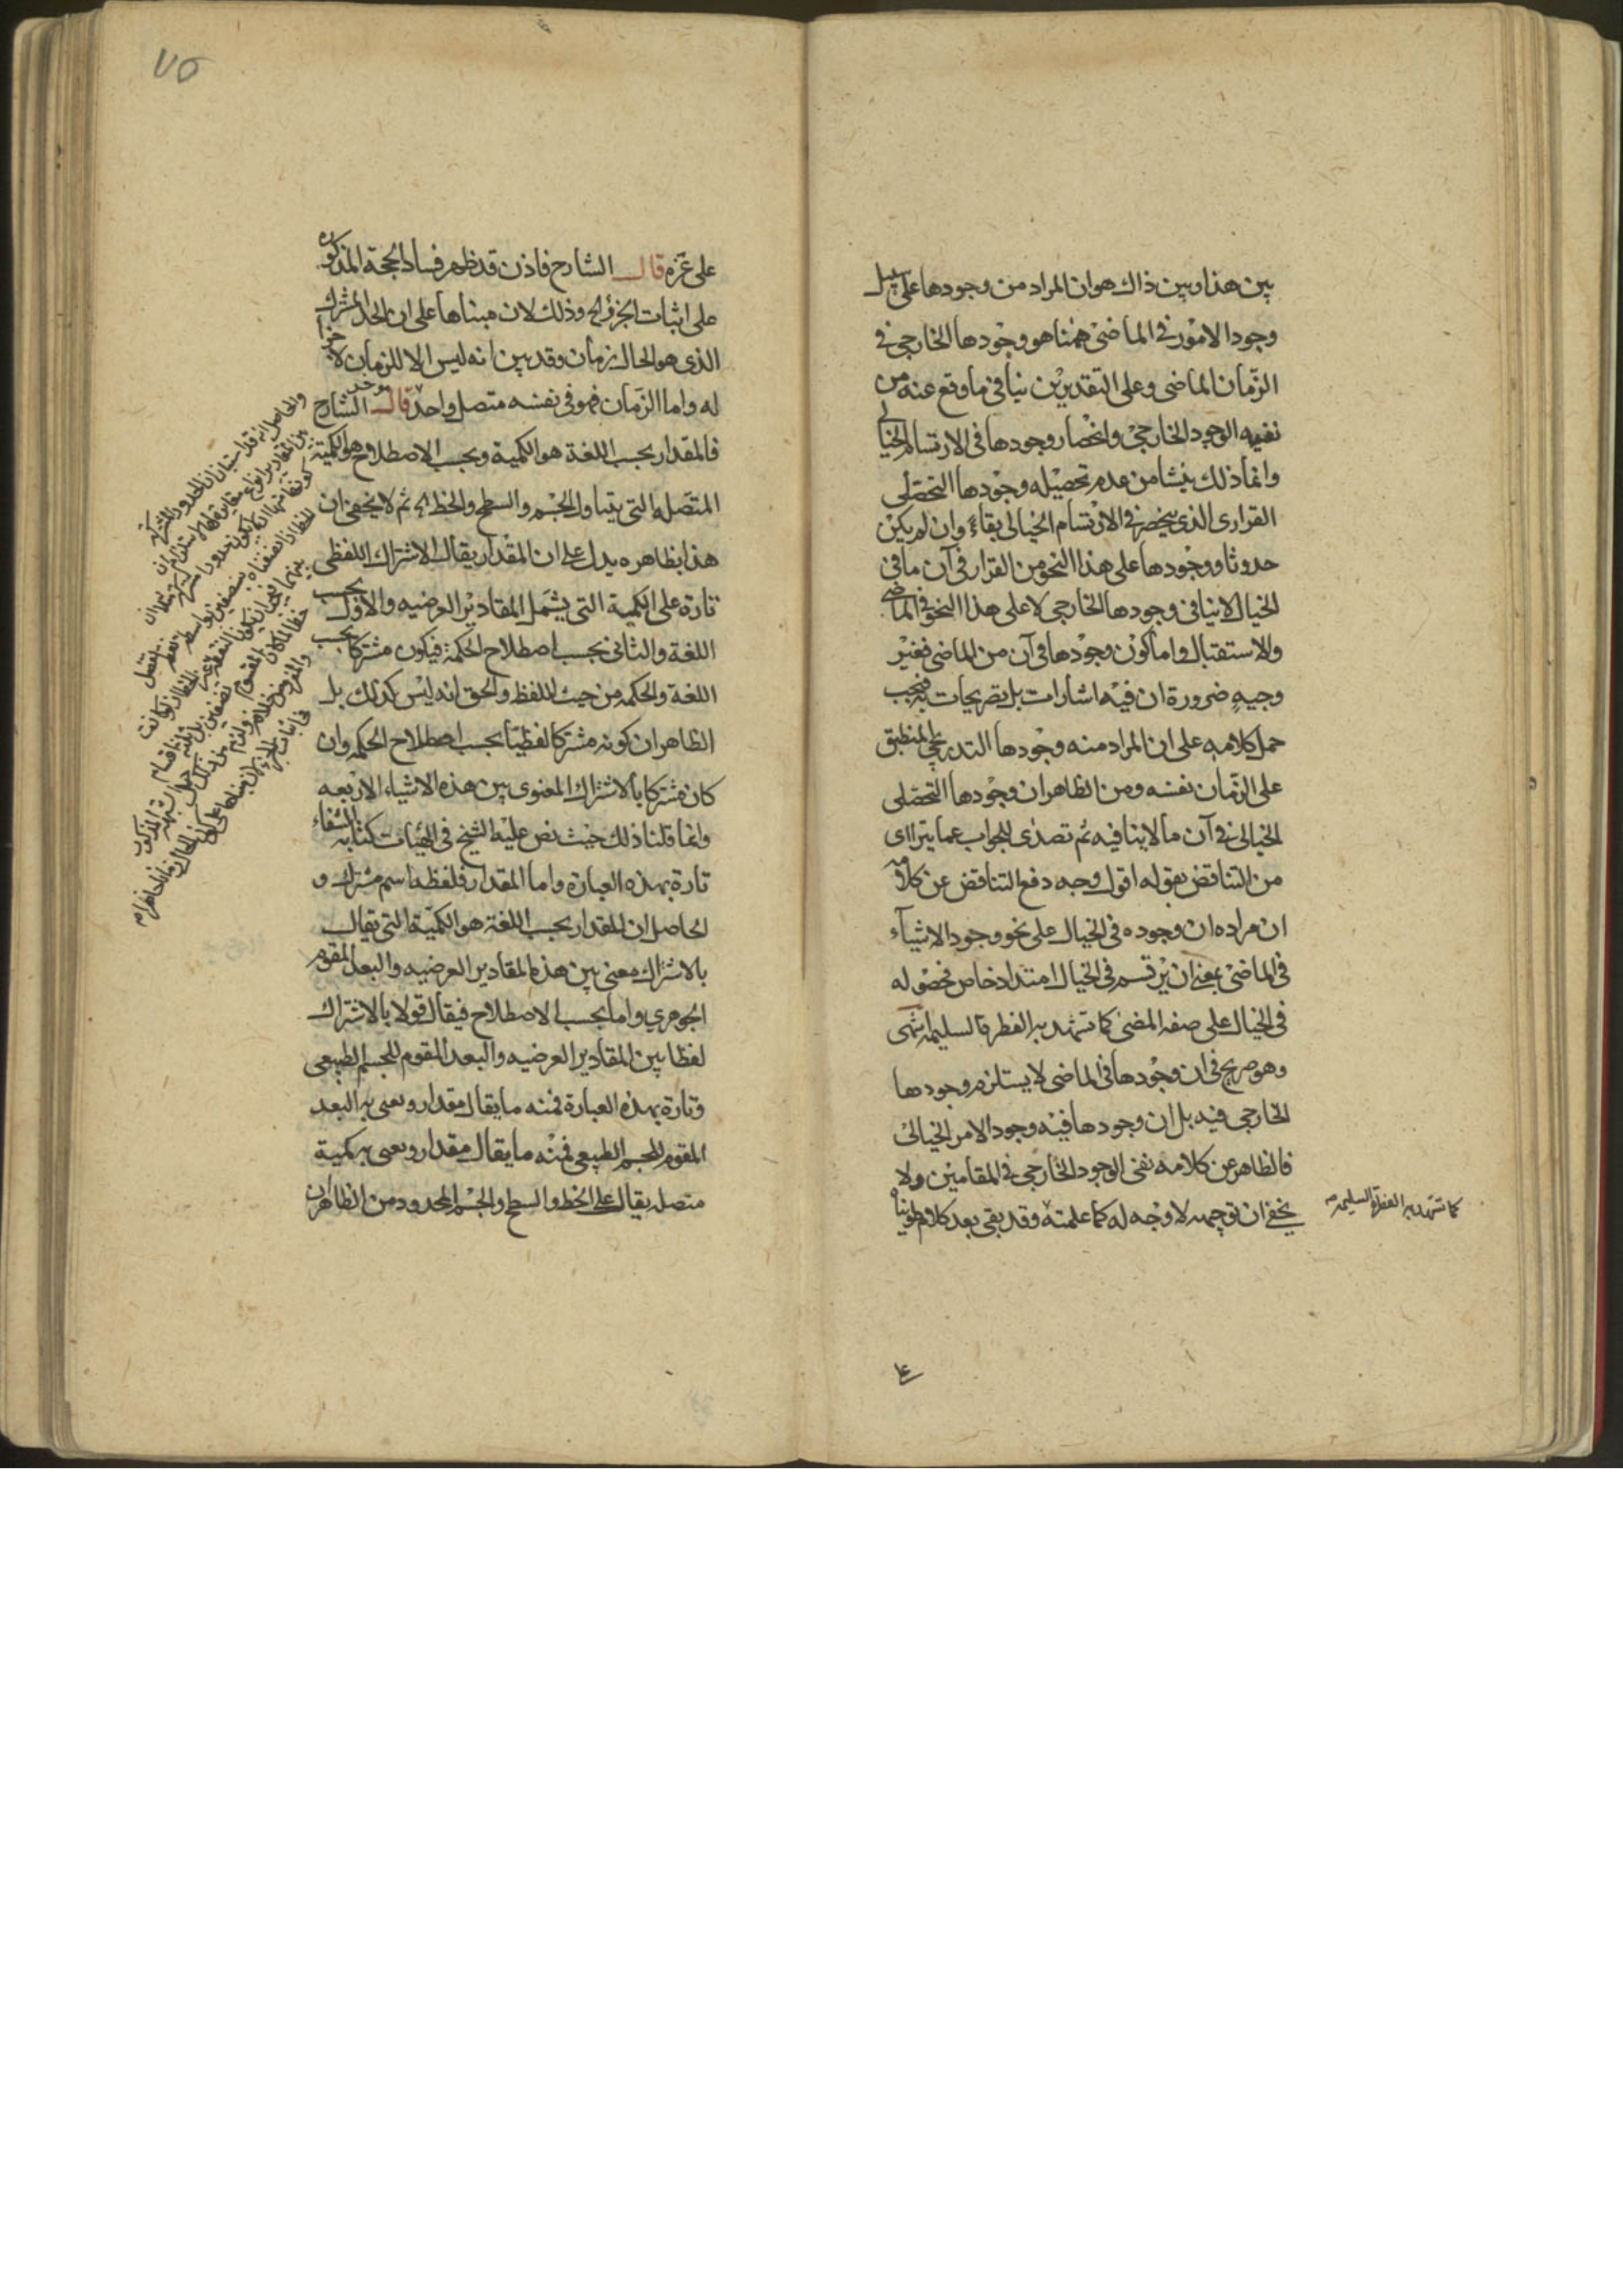 بين هذا وبين ذاك هو ان المراد من وجودها على سبيل
وجود الامور في الماضي ههنا هو وجودها الخارجي في
الزمان الماضي وعلى التقديرين ينافي ما وقع عنه من
نفيه الوجود الخارجي وانحصار وجودها في الارتسام الخيالي
وانما ذلك ينشا من عدم تحصيله وجودها التحصلي
القراري الذي ينحصر في الارتسام الخيالي بقاء وان لم يكن
حدوثا ووجودها على هذا النحو من القرار في آن ما في
الخيال لا ينافي وجودها الخارجي لا على هذا النحو في الماضي
والاستقبال واما كون وجودها في آن من الماضي فغير
وجيه ضرورة ان فيه اشارات بل تصريحات به فيجب
حمل كلامه على ان المراد منه وجودها التدريجي المنطبق
على الزمان نفسه ومن الظاهر ان وجودها التحصلي
الخيالي في آن ما لا ينافيه ثم تصدى للجواب عما يتراءى
من التناقض بقوله اقول وجه دفع التناقض عن كلامه
ان مراده ان وجوده في الخيال على نحو وجود الاشياء
في الماضي بمعنى ان يرتسم في الخيال امتداد خاص فحصوله
في الخيال على صفة المضي كما تشهد به الفطرة السليمة انتهى
وهو صريح في ان وجودها في الماضي لا يستلزم وجودها
الخارجي فيه بل ان وجودها فيه وجود الامر الخيالي
فالظاهر عن كلامه نفي الوجود الخارجي في المقامين ولا
يخفى ان توجيهه لا وجه له كما علمته وقد بقي بعد كلام طويناه
كما تشهد به الفطرة السليمة
٧٥
على غره قال الشارح فاذن قد ظهر فساد الحجة المذكوره
على اثبات الجزء الخ وذلك لان مبناها على ان الحد المشترك
الذي هو الحال زمان وقد بين انه ليس الا للزمان لا جزء
له واما الزمان فهو في نفسه متصل واحد قال الشارح
فالمقدار بحسب اللغة هو الكمية وبحسب الاصطلاح هو الكمية
المتصله التي يتناول الجسم والسطح والخط الخ ثم لا يخفى ان
هذا بظاهره يدل على ان المقدار يقال الاشتراك اللفظي
تارة على الكمية التي يشمل المقادير العرضيه والاول بحسب
اللغة والثاني بحسب اصطلاح الحكمة فيكون مشتركا بحسب
اللغة والحكمه من حيث اللفظ والحق انه ليس كذلك بل
الظاهر ان كونه مشتركا لفظيا بحسب اصطلاح الحكمه وان
كان مشتركا بالاشتراك المعنوي بين هذه الاشياء الاربعه
وانما قلنا ذلك حيث نص عليه الشيخ في الهيات كتابه الشفاء
تارة بهذه العبارة واما المقدار فلفظه اسم مشترك و
الحاصل ان المقدار بحسب اللغة هو الكمية التي يقال
بالاشتراك معنى بين هذه المقادير العرضيه والبعد المقوم
الجوهري واما بحسب الاصطلاح فيقال قولا بالاشتراك
لفظا بين المقادير العرضيه والبعد المقوم للجسم الطبيعي
وتارة بهذه العبارة فمنه ما يقال مقدار ويعنى به البعد
المقوم للجسم الطبيعي فمنه ما يقال مقدار ويعنى به كمية
متصله يقال على الخط والسطح والجسم المحدود من الظاهر ان